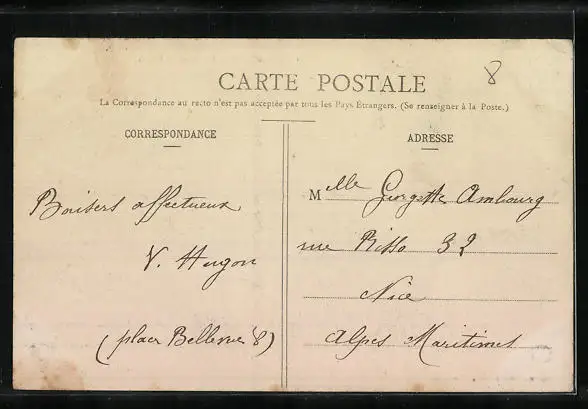 8
CARTE POSTALE
La Correspondance au recto n'est pas acceptée par tous les Pays Etrangers. (Se renseigner à la Poste.)
CORRESPONDANCE
ADRESSE
Baisers affectueux
V. Hugon
(place Bellevue 8)
Melle Georgette Ambourg
rue Risso 32
Nice
Alpes Maritimes